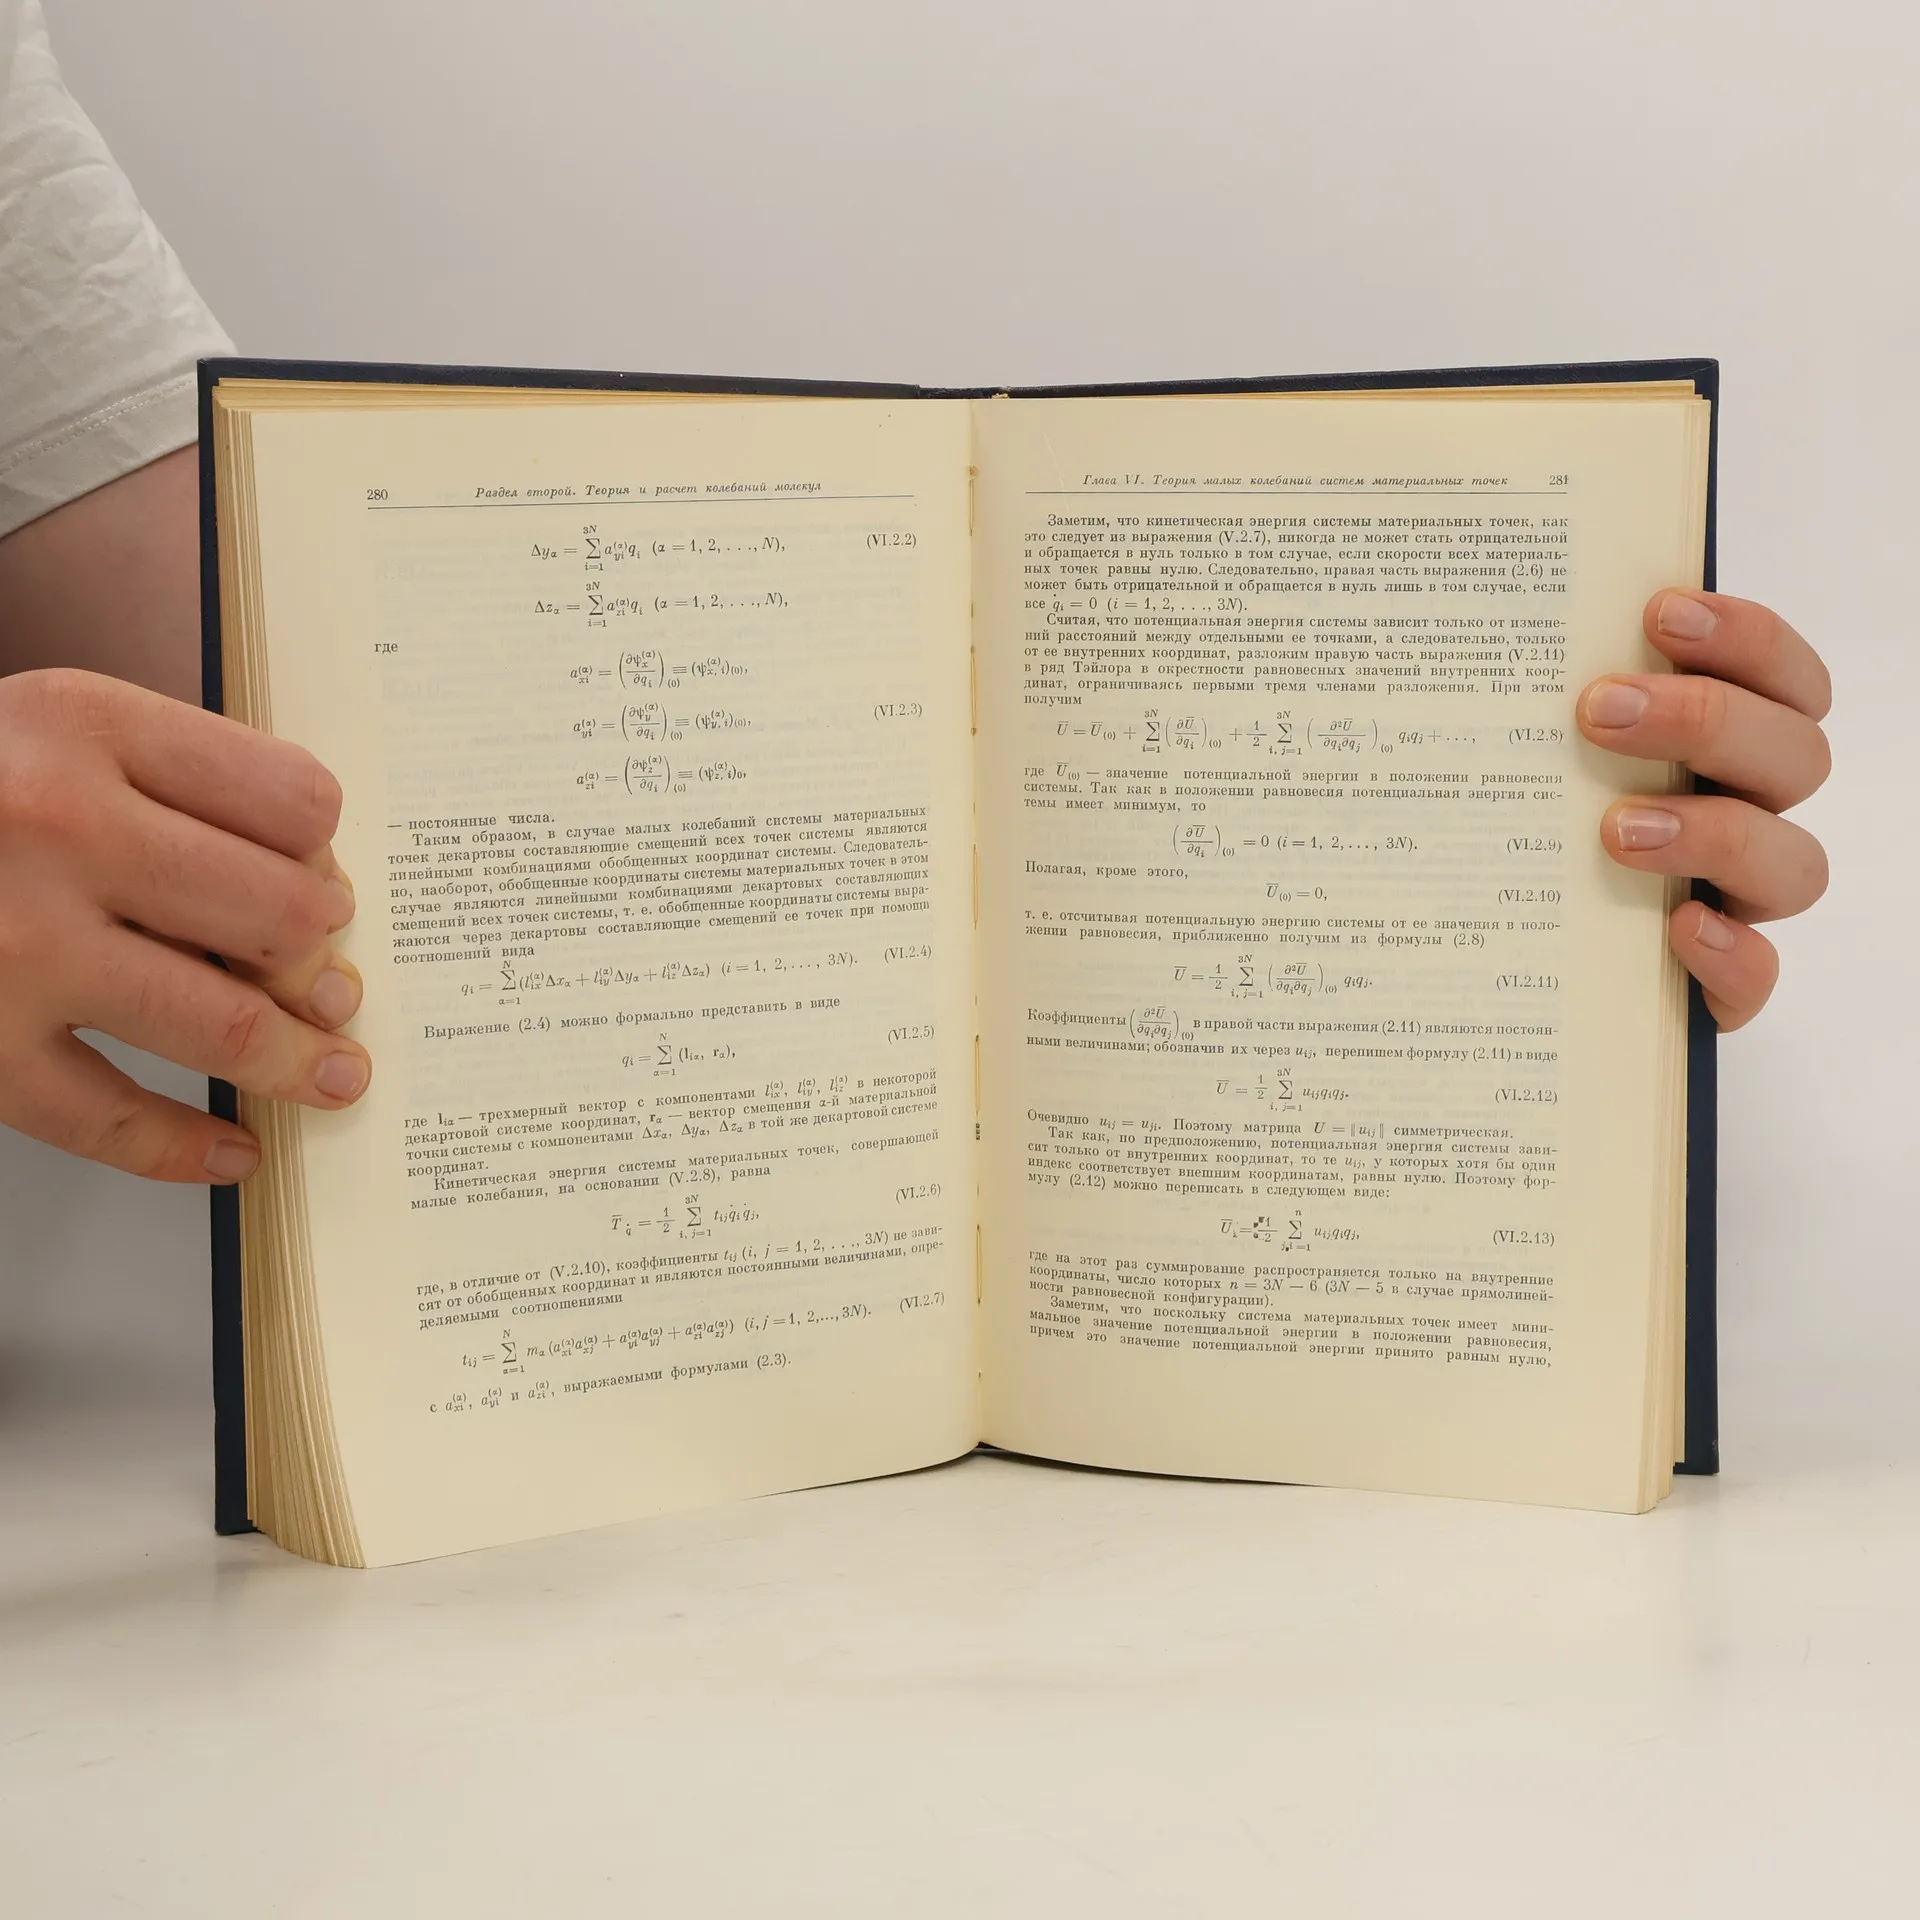 280 Раздел второй. Теория и расчет колебаний молекул
Δyα = ∑_{i=1}^{3N} a_{yi}^{(α)} q_i (α = 1, 2, . . ., N), (VI.2.2)
Δzα = ∑_{i=1}^{3N} a_{zi}^{(α)} q_i (α = 1, 2, . . ., N),
где
a_{xi}^{(α)} = (∂ψ_x^{(α)}/∂q_i)_{(0)} ≡ (ψ_{x, i}^{(α)})_{(0)},
a_{yi}^{(α)} = (∂ψ_y^{(α)}/∂q_i)_{(0)} ≡ (ψ_{y, i}^{(α)})_{(0)}, (VI.2.3)
a_{zi}^{(α)} = (∂ψ_z^{(α)}/∂q_i)_{(0)} ≡ (ψ_{z, i}^{(α)})_{0},
— постоянные числа.
Таким образом, в случае малых колебаний системы материальных
точек декартовы составляющие смещений всех точек системы являются
линейными комбинациями обобщенных координат системы. Следователь-
но, наоборот, обобщенные координаты системы материальных точек в этом
случае являются линейными комбинациями декартовых составляющих
смещений всех точек системы, т. е. обобщенные координаты системы выра-
жаются через декартовы составляющие смещений ее точек при помощи
соотношений вида
q_i = ∑_{α=1}^{N} (l_{ix}^{(α)} Δx_α + l_{iy}^{(α)} Δy_α + l_{iz}^{(α)} Δz_α) (i = 1, 2, . . ., 3N). (VI.2.4)
Выражение (2.4) можно формально представить в виде
q_i = ∑_{α=1}^{N} (l_{iα}, r_α), (VI.2.5)
где l_{iα} — трехмерный вектор с компонентами l_{ix}^{(α)}, l_{iy}^{(α)}, l_{iz}^{(α)} в некоторой
декартовой системе координат, r_α — вектор смещения α-й материальной
точки системы с компонентами Δx_α, Δy_α, Δz_α в той же декартовой системе
координат.
Кинетическая энергия системы материальных точек, совершающей
малые колебания, на основании (V.2.8), равна
T̅_{q̇} = 1/2 ∑_{i, j=1}^{3N} t_{ij} q̇_i q̇_j, (VI.2.6)
где, в отличие от (V.2.10), коэффициенты t_{ij} (i, j = 1, 2, . . ., 3N) не зави-
сят от обобщенных координат и являются постоянными величинами, опре-
деляемыми соотношениями
t_{ij} = ∑_{α=1}^{N} m_α (a_{xi}^{(α)} a_{xj}^{(α)} + a_{yi}^{(α)} a_{yj}^{(α)} + a_{zi}^{(α)} a_{zj}^{(α)}) (i, j = 1, 2,..., 3N). (VI.2.7)
с a_{xi}^{(α)}, a_{yi}^{(α)} и a_{zi}^{(α)}, выражаемыми формулами (2.3).
Глава VI. Теория малых колебаний систем материальных точек 281
Заметим, что кинетическая энергия системы материальных точек, как
это следует из выражения (V.2.7), никогда не может стать отрицательной
и обращается в нуль только в том случае, если скорости всех материаль-
ных точек равны нулю. Следовательно, правая часть выражения (2.6) не
может быть отрицательной и обращается в нуль лишь в том случае, если
все q̇_i = 0 (i = 1, 2, . . ., 3N).
Считая, что потенциальная энергия системы зависит только от измене-
ний расстояний между отдельными ее точками, а следовательно, только
от ее внутренних координат, разложим правую часть выражения (V.2.11)
в ряд Тэйлора в окрестности равновесных значений внутренних коор-
динат, ограничиваясь первыми тремя членами разложения. При этом
получим
U̅ = U̅_{(0)} + ∑_{i=1}^{3N} (∂U̅/∂q_i)_{(0)} + 1/2 ∑_{i, j=1}^{3N} (∂²U̅/∂q_i∂q_j)_{(0)} q_i q_j + . . ., (VI.2.8)
где U̅_{(0)} — значение потенциальной энергии в положении равновесия
системы. Так как в положении равновесия потенциальная энергия сис-
темы имеет минимум, то
(∂U̅/∂q_i)_{(0)} = 0 (i = 1, 2, . . ., 3N). (VI.2.9)
Полагая, кроме этого,
U̅_{(0)} = 0, (VI.2.10)
т. е. отсчитывая потенциальную энергию системы от ее значения в поло-
жении равновесия, приближенно получим из формулы (2.8)
U̅ = 1/2 ∑_{i, j=1}^{3N} (∂²U̅/∂q_i∂q_j)_{(0)} q_i q_j. (VI.2.11)
Коэффициенты (∂²U̅/∂q_i∂q_j)_{(0)} в правой части выражения (2.11) являются постоян-
ными величинами; обозначив их через u_{ij}, перепишем формулу (2.11) в виде
U̅ = 1/2 ∑_{i, j=1}^{3N} u_{ij} q_i q_j. (VI.2.12)
Очевидно u_{ij} = u_{ji}. Поэтому матрица U = ‖u_{ij}‖ симметрическая.
Так как, по предположению, потенциальная энергия системы зави-
сит только от внутренних координат, то те u_{ij}, у которых хотя бы один
индекс соответствует внешним координатам, равны нулю. Поэтому фор-
мулу (2.12) можно переписать в следующем виде:
U̅ = 1/2 ∑_{j,i=1}^{n} u_{ij} q_i q_j, (VI.2.13)
где на этот раз суммирование распространяется только на внутренние
координаты, число которых n = 3N — 6 (3N — 5 в случае прямолиней-
ности равновесной конфигурации).
Заметим, что поскольку система материальных точек имеет мини-
мальное значение потенциальной энергии в положении равновесия,
причем это значение потенциальной энергии принято равным нулю,